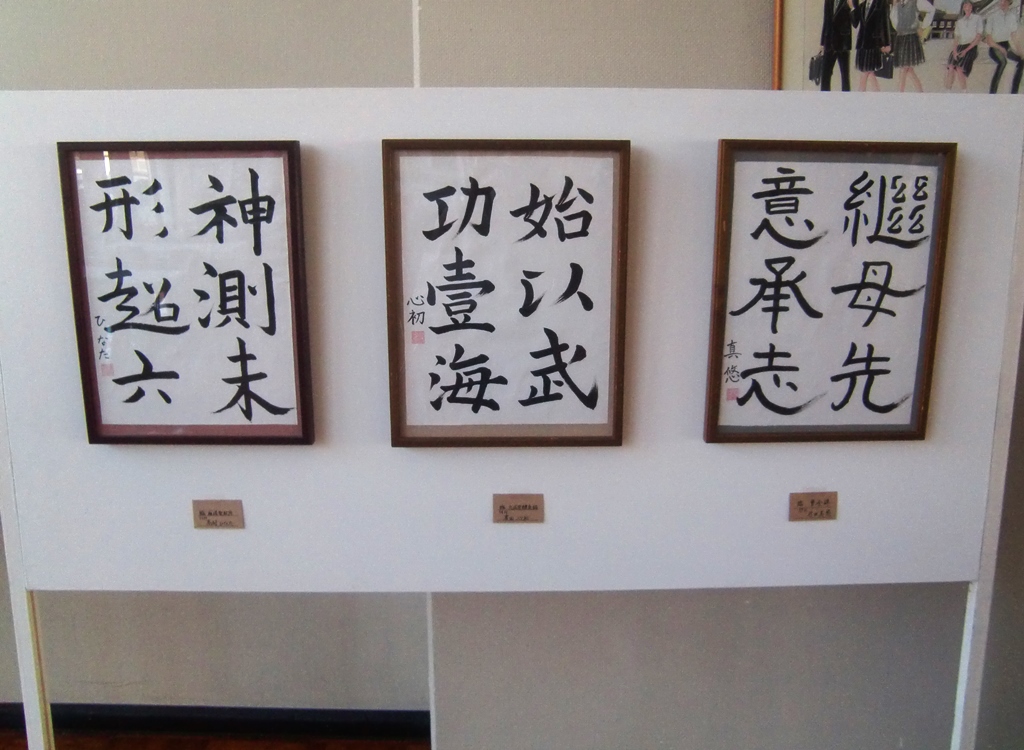 神測未
形超六
ひなた
始以武
功壹海
心初
繼母先
意承志
真悠